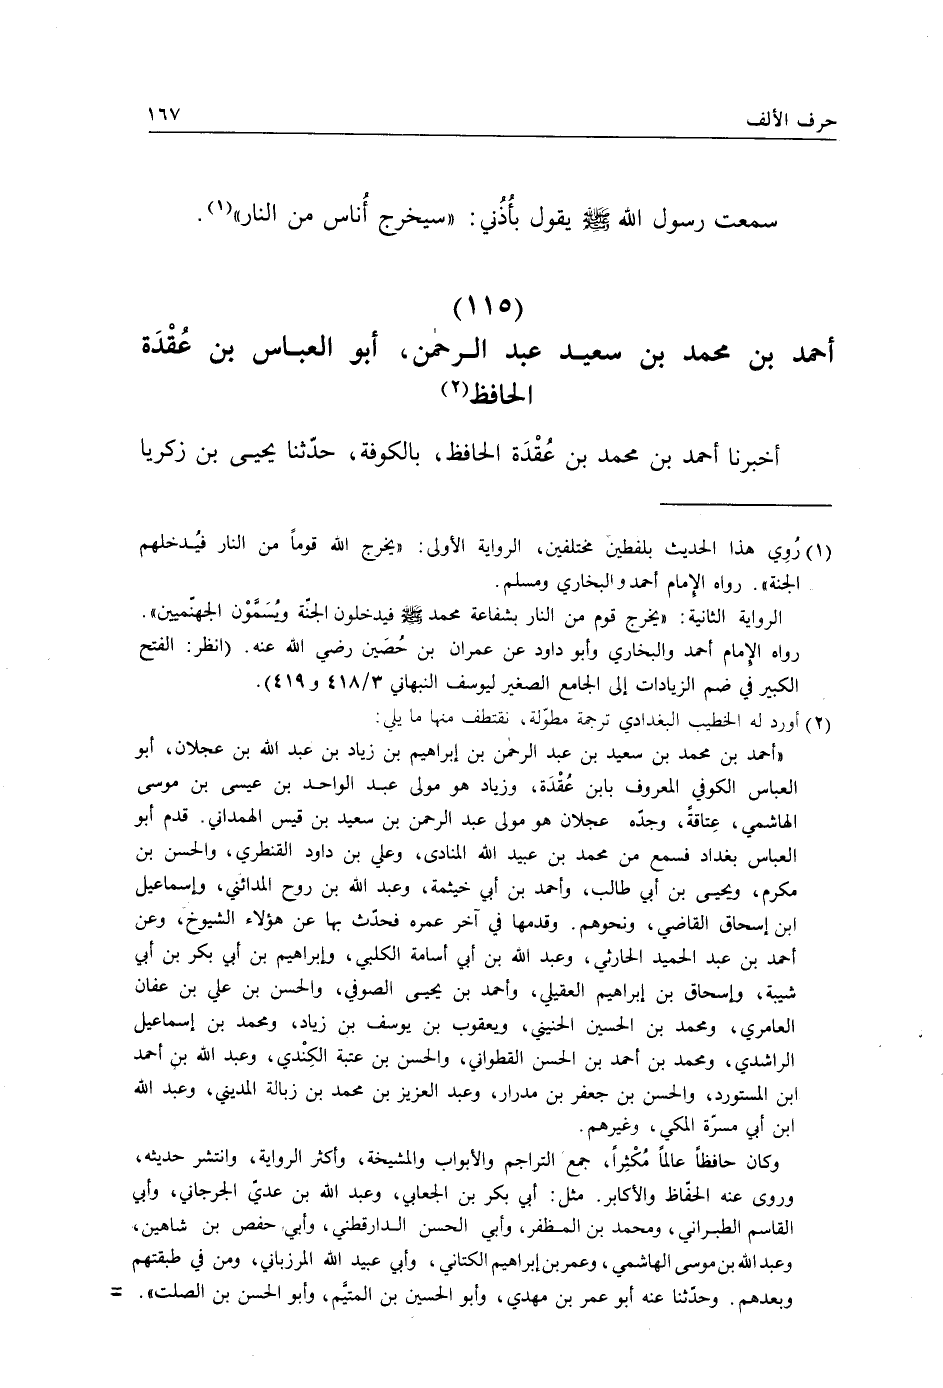 حرف الألف ١٦٧
سمعت رسول الله ﷺ يقول بأُذُني: «سيخرج أُناس من النار»(١).
(١١٥)
أحمد بن محمد بن سعيد عبد الرحمٰن، أبو العباس بن عُقْدَة
الحافظ(٢)
أخبرنا أحمد بن محمد بن عُقْدَة الحافظ، بالكوفة، حدّثنا يحيى بن زكريا
(١) رُوِي هذا الحديث بلفظين مختلفين، الرواية الأولى: «يخرج الله قوماً من النار فيُدخلهم
الجنة». رواه الإمام أحمد والبخاري ومسلم.
الرواية الثانية: «يخرج قوم من النار بشفاعة محمد ﷺ فيدخلون الجنّة ويُسَمَّوْن الجهنّميين».
رواه الإمام أحمد والبخاري وأبو داود عن عمران بن حُصَين رضي الله عنه. (انظر: الفتح
الكبير في ضم الزيادات إلى الجامع الصغير ليوسف النبهاني ٤١٨/٣ و٤١٩).
(٢) أورد له الخطيب البغدادي ترجمة مطوّلة، نقتطف منها ما يلي:
«أحمد بن محمد بن سعيد بن عبد الرحمٰن بن إبراهيم بن زياد بن عبد الله بن عجلان، أبو
العباس الكوفي المعروف بابن عُقْدَة، وزياد هو مولى عبد الواحد بن عيسى بن موسى
الهاشمي، عِتاقةً، وجدّه عجلان هو مولى عبد الرحمن بن سعيد بن قيس الهمداني. قدم أبو
العباس بغداد فسمع من محمد بن عبيد الله المنادى، وعلي بن داود القنطري، والحسن بن
مكرم، ويحيى بن أبي طالب، وأحمد بن أبي خيثمة، وعبد الله بن روح المدائني، وإسماعيل
ابن إسحاق القاضي، ونحوهم. وقدمها في آخر عمره فحدّث بها عن هؤلاء الشيوخ، وعن
أحمد بن عبد الحميد الحارثي، وعبد الله بن أبي أسامة الكلبي، وإبراهيم بن أبي بكر بن أبي
شيبة، وإسحاق بن إبراهيم العقيلي، وأحمد بن يحيى الصوفي، والحسن بن علي بن عفان
العامري، ومحمد بن الحسين الحنيني، ويعقوب بن يوسف بن زياد، ومحمد بن إسماعيل
الراشدي، ومحمد بن أحمد بن الحسن القطواني، والحسن بن عتبة الكِنْدي، وعبد الله بن أحمد
ابن المستورد، والحسن بن جعفر بن مدرار، وعبد العزيز بن محمد بن زبالة المديني، وعبد الله
ابن أبي مسرّة المكي، وغيرهم.
وكان حافظاً عالماً مُكْثِراً، جمع التراجم والأبواب والمشيخة، وأكثر الرواية، وانتشر حديثه،
وروى عنه الحفّاظ والأكابر. مثل: أبي بكر بن الجعابي، وعبد الله بن عديّ الجرجاني، وأبي
القاسم الطبراني، ومحمد بن المظفر، وأبي الحسن الدارقطني، وأبي حفص بن شاهين،
وعبد الله بن موسى الهاشمي، وعمر بن إبراهيم الكتاني، وأبي عبيد الله المرزباني، ومن في طبقتهم
وبعدهم. وحدّثنا عنه أبو عمر بن مهدي، وأبو الحسين بن المتيَّم، وأبو الحسن بن الصلت». =